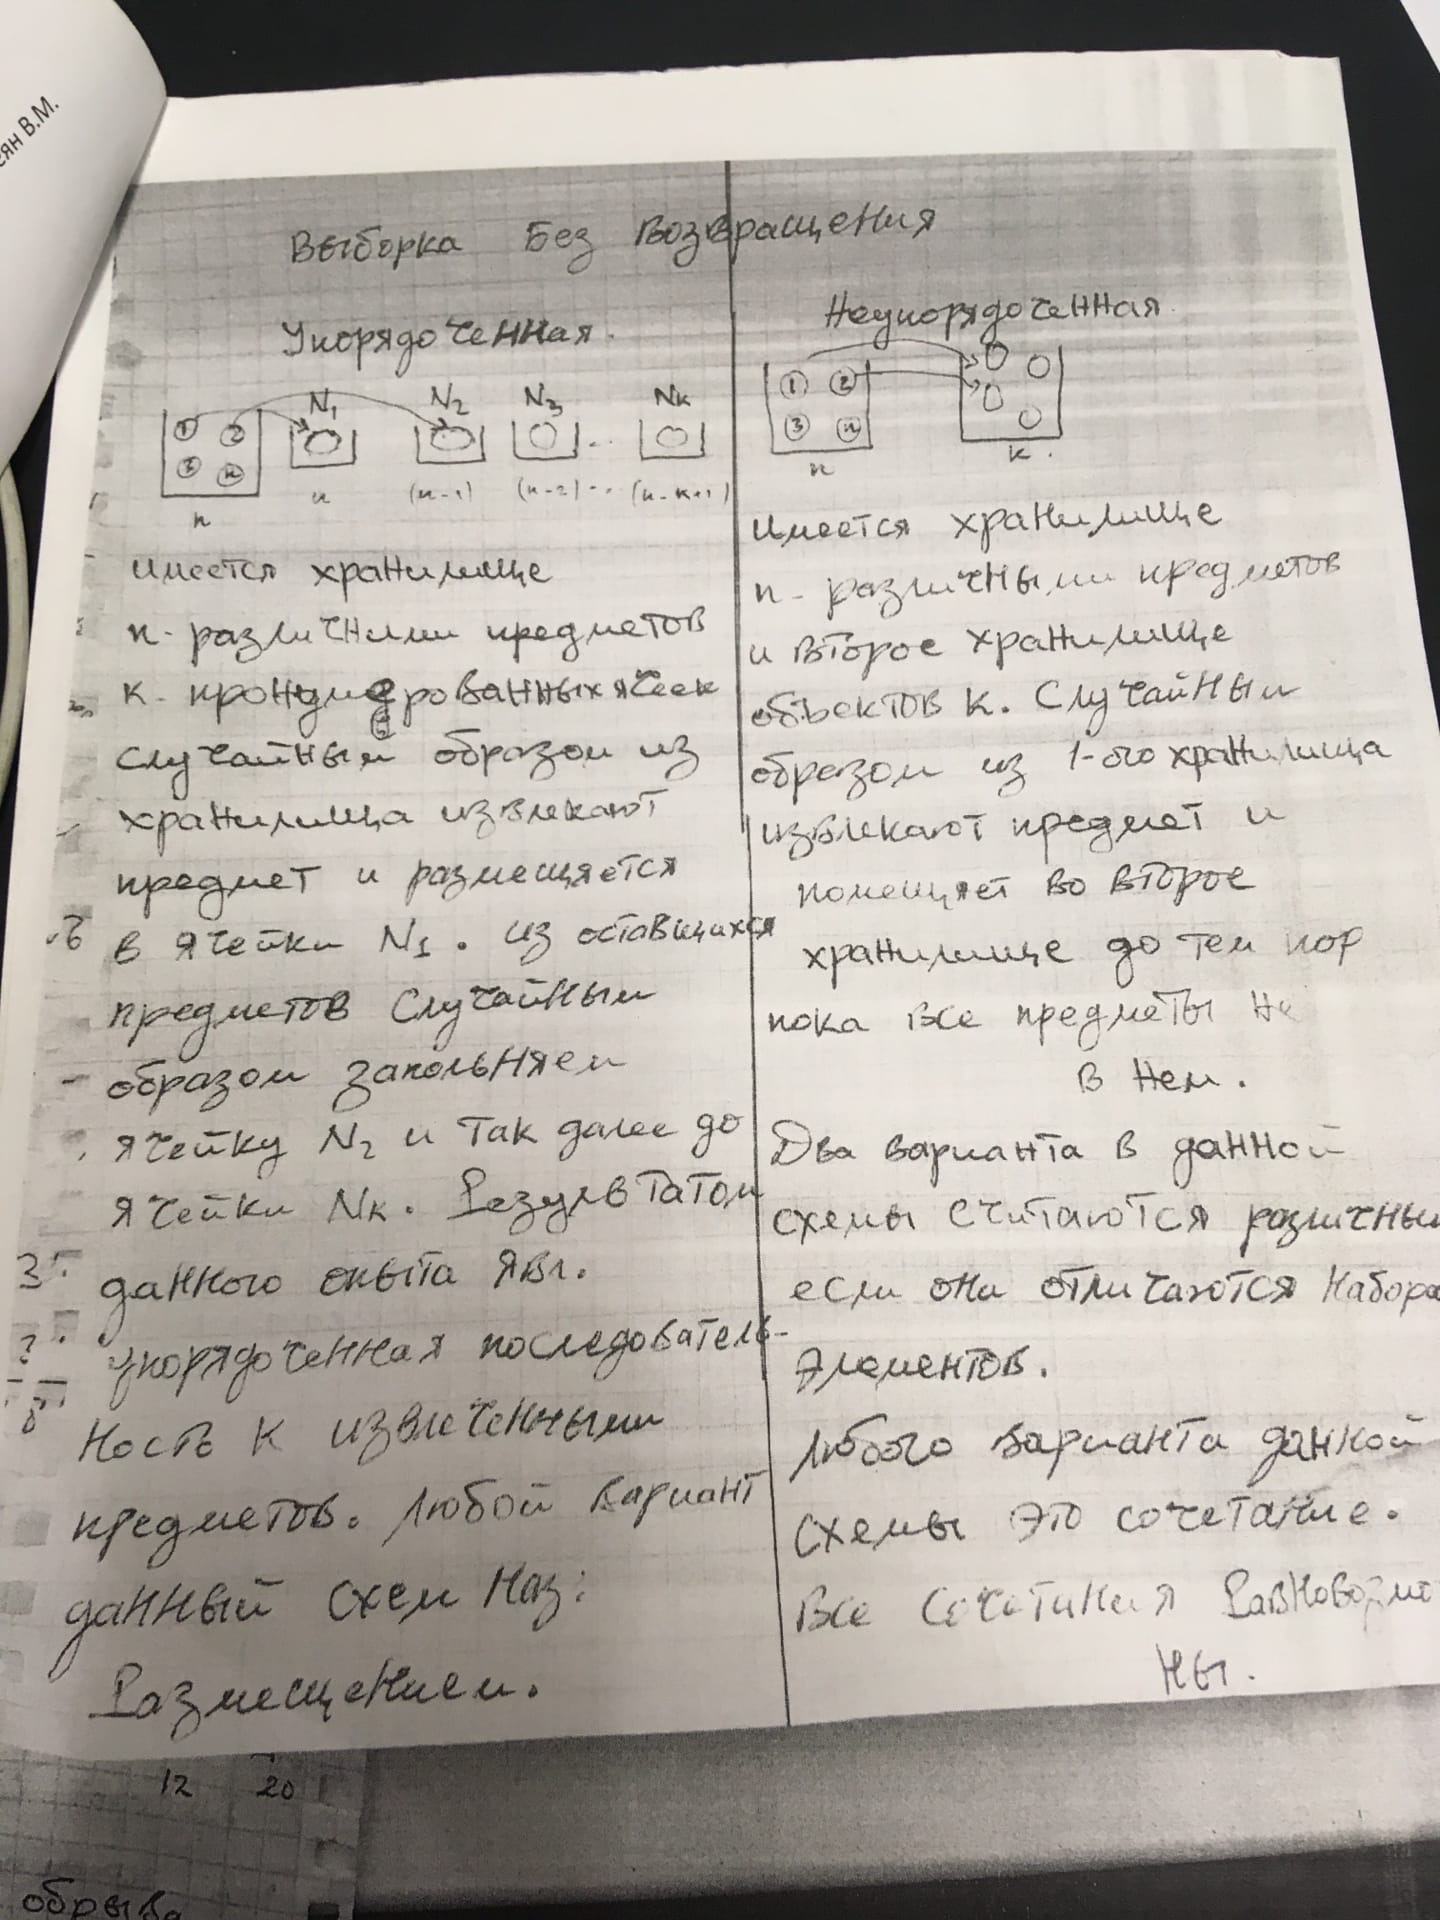 ян В.М.
Выборка Без Возвращения
Упорядоченная.
N1 N2 N3 Nк
1 2
3 n
n
n (n-1) (n-2)... (n-к+1)
имеется хранилище
n- различними предметов
к- пронумерованных ячеек
Случайным образом из
хранилища извлекают
предмет и размещяется
в ячейки N1. из оставщихся
предметов Случайным
образом запольняем
ячейку N2 и так далее до
ячейки Nк. Результатом
данного опыта явл.
упорядоченная последователь-
ность к извлеченными
предметов. Любой вариант
данный схем наз:
Размещением.
Неупорядоченная
1 2
3 n
n к.
имеется хранилище
n- различными предметов
и второе хранилище
объектов к. Случайным
образом из 1-ого хранилища
извлекают предмет и
помещяет во второе
хранилище до тем пор
пока все предметы не
в нем.
Два варианта в данной
схемы считаются различны
если они отличаются набора
элементов.
Любого варианта данной
схемы это сочетание.
Все сочетания Равновозмо
ны.
12 20
обрыва